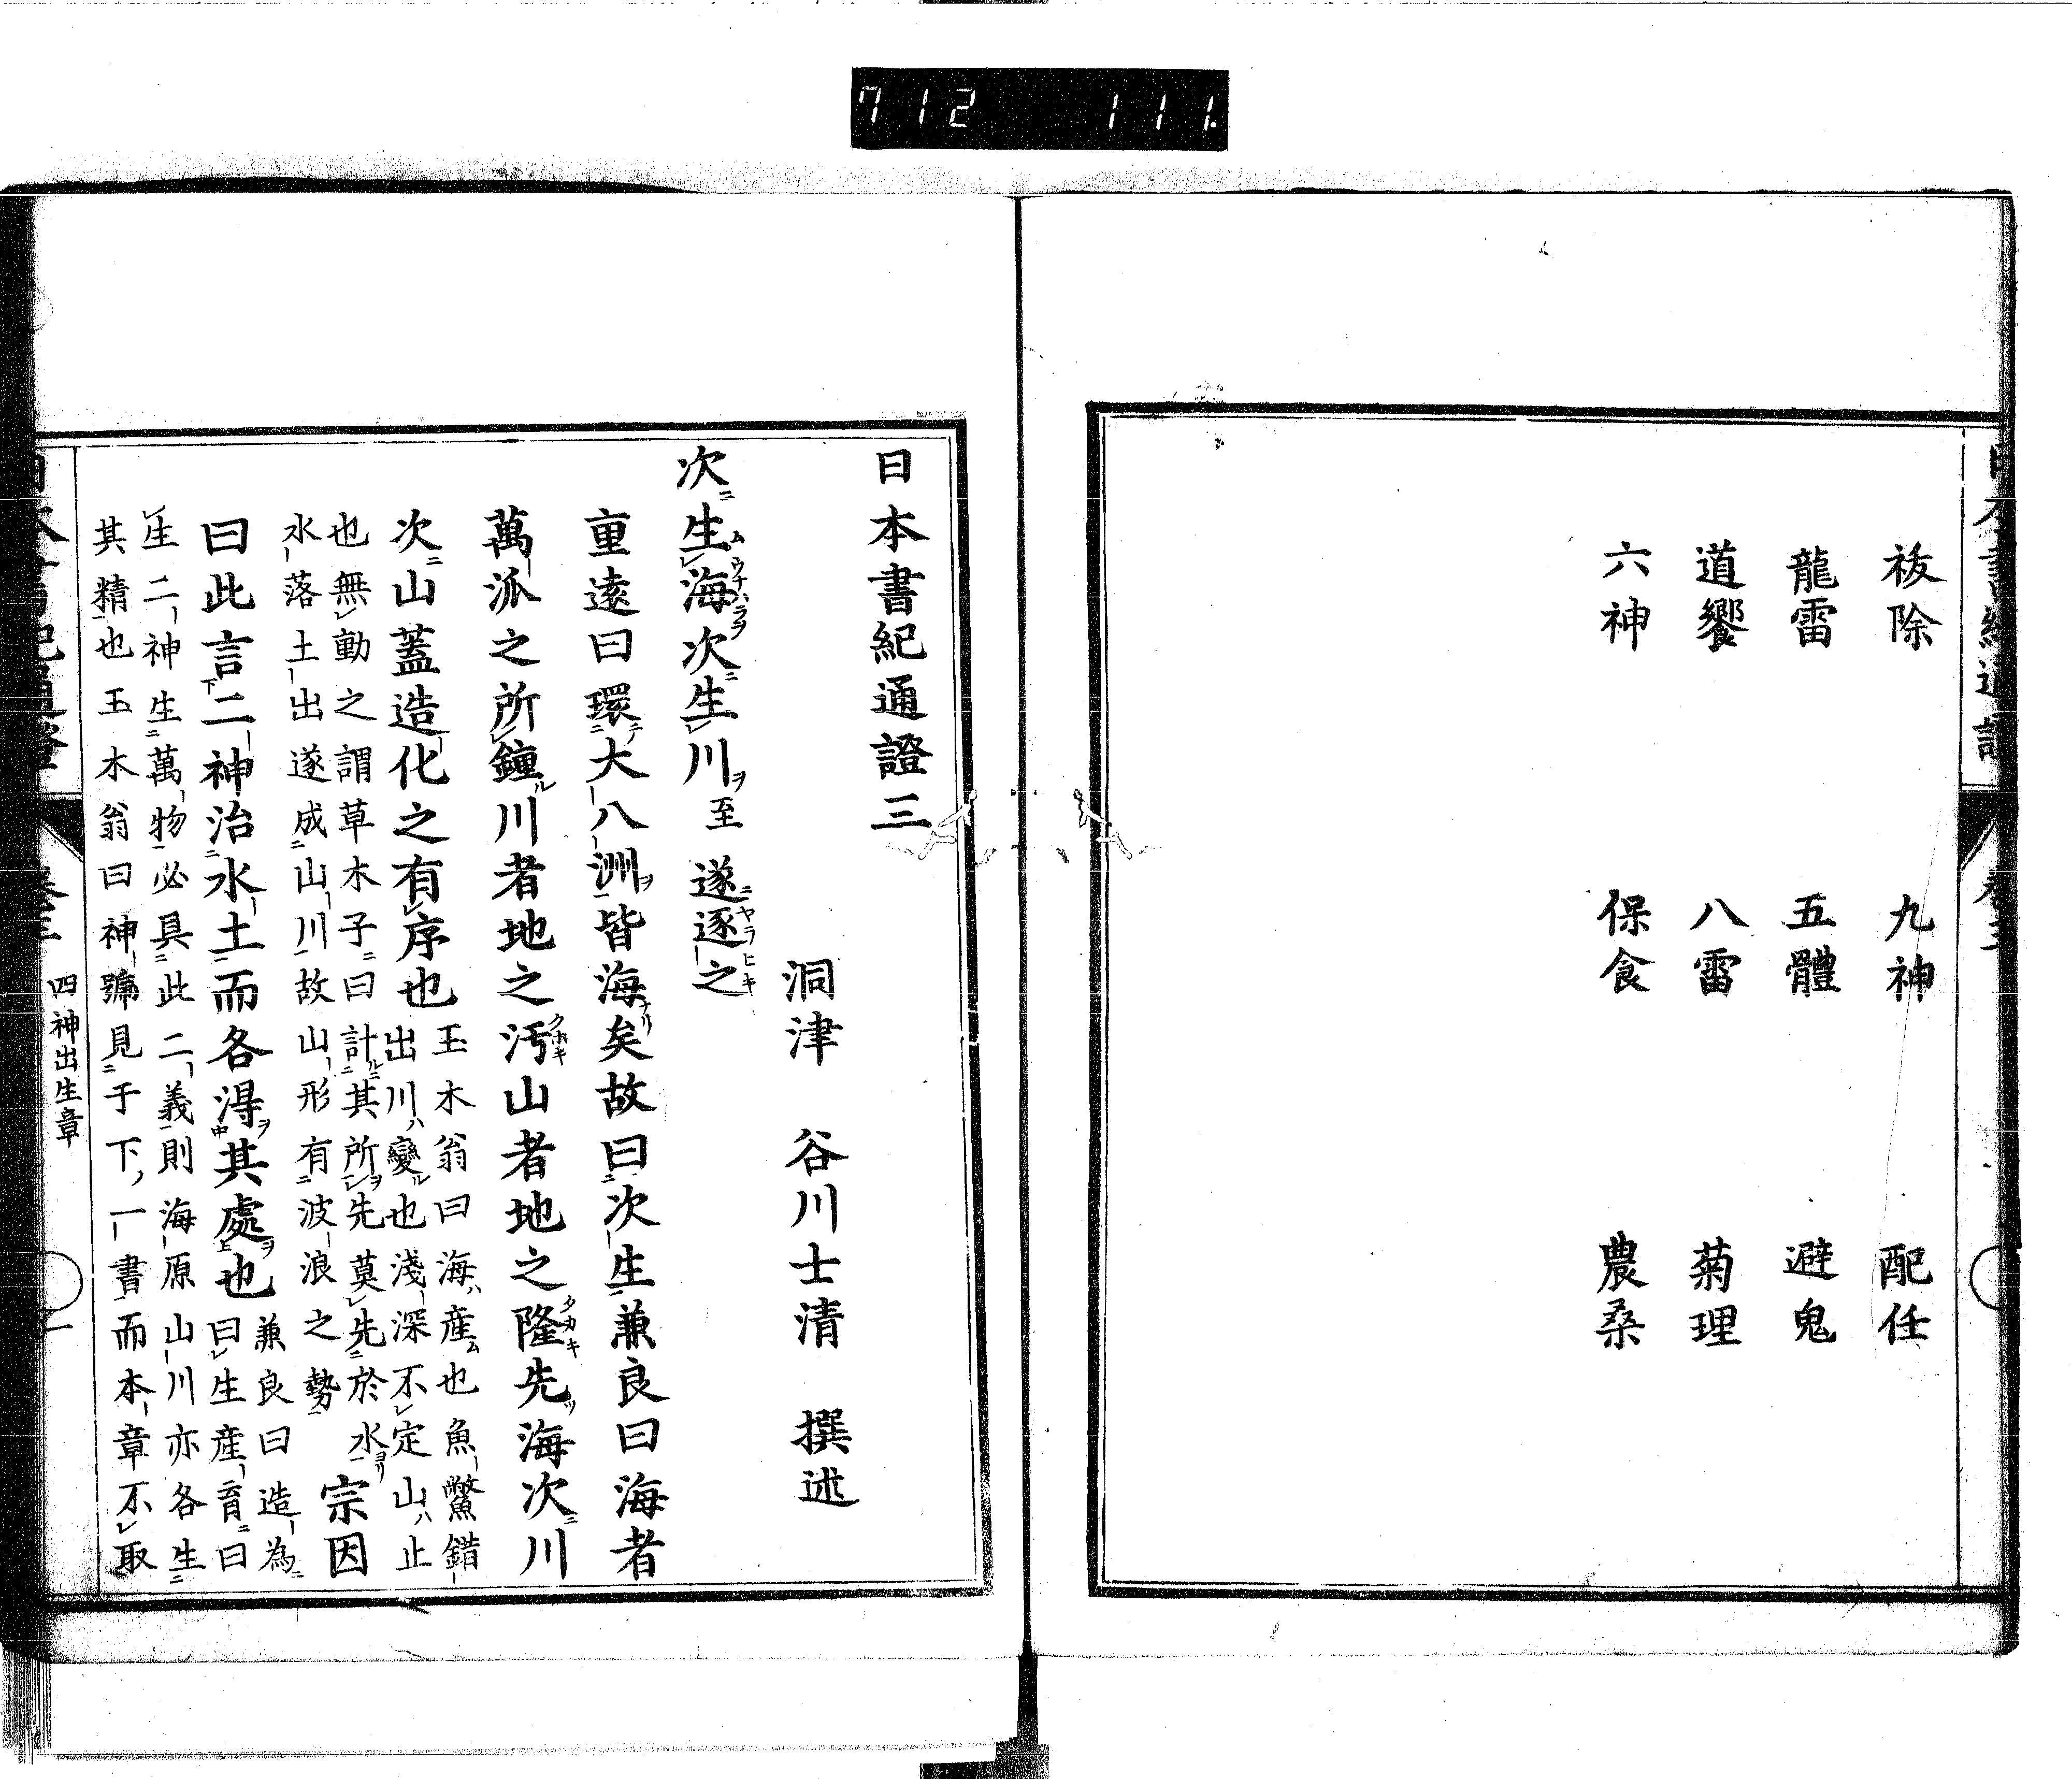 712 111.
祓除 九神 配任
龍雷 五體 避鬼
道饗 八雷 菊理
六神 保食 農桑
日本書紀通證三
洞津 谷川士清 撰述
次生海次生川至遂逐之
重遠曰環大八洲皆海矣故曰次生兼良曰海者
萬派之所鍾川者地之汚山者地之隆先海次川
次山蓋造化之有序也
玉木翁曰海産也魚鱉錯
出川變也淺深不定山止
也無動之謂草木子曰計其所先莫先於水
水落土出遂成山川故山形有波浪之勢
宗因
曰此言二神治水土而各得其處也
兼良曰造為
曰生産育曰
生二神生萬物必具此二義則海原山川亦各生
其精也玉木翁曰神號見于下一書而本章不取
四神出生章